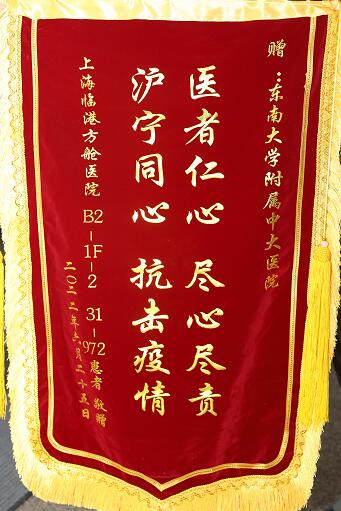 赠：东南大学附属中大医院
医者仁心 尽心尽责
沪宁同心 抗击疫情
上海临港方舱医院 B2-1F-2 31-972 患者 敬赠
二〇二二年六月二十五日